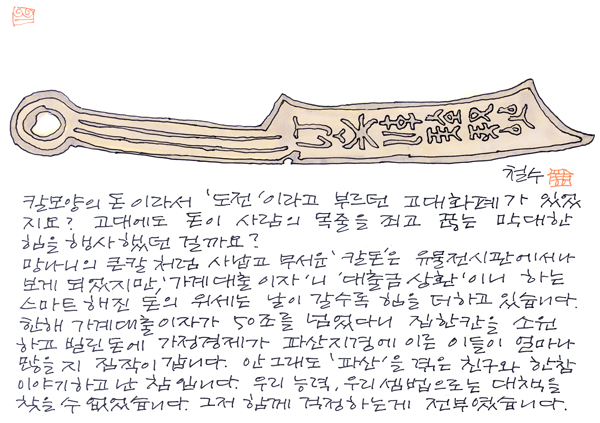 철수
칼모양의 돈이라서 '도전'이라고 부르던 고대화폐가 있었
지요? 고대에도 돈이 사람의 목줄을 죄고 끊는 막대한
힘을 행사했던 걸까요?
망나니의 큰칼처럼 사납고 무서운 '칼돈'은 유물전시판에서나
보게 되었지만, '가계대출이자'니 '대출금상환'이니 하는
스마트해진 돈의 위세는 날이 갈수록 힘을 더하고 있습니다.
한해 가계대출이자가 50조를 넘었다니 집한칸을 소원
하고 빌린돈에 가정경제가 파산지경에 이른 이들이 얼마나
많을지 짐작이 갑니다. 안그래도 '파산'을 겪은 친구와 한참
이야기하고 난 참입니다. 우리 능력, 우리 셈법으로는 대책을
찾을 수 없었습니다. 그저 함께 걱정하는게 전부였습니다.